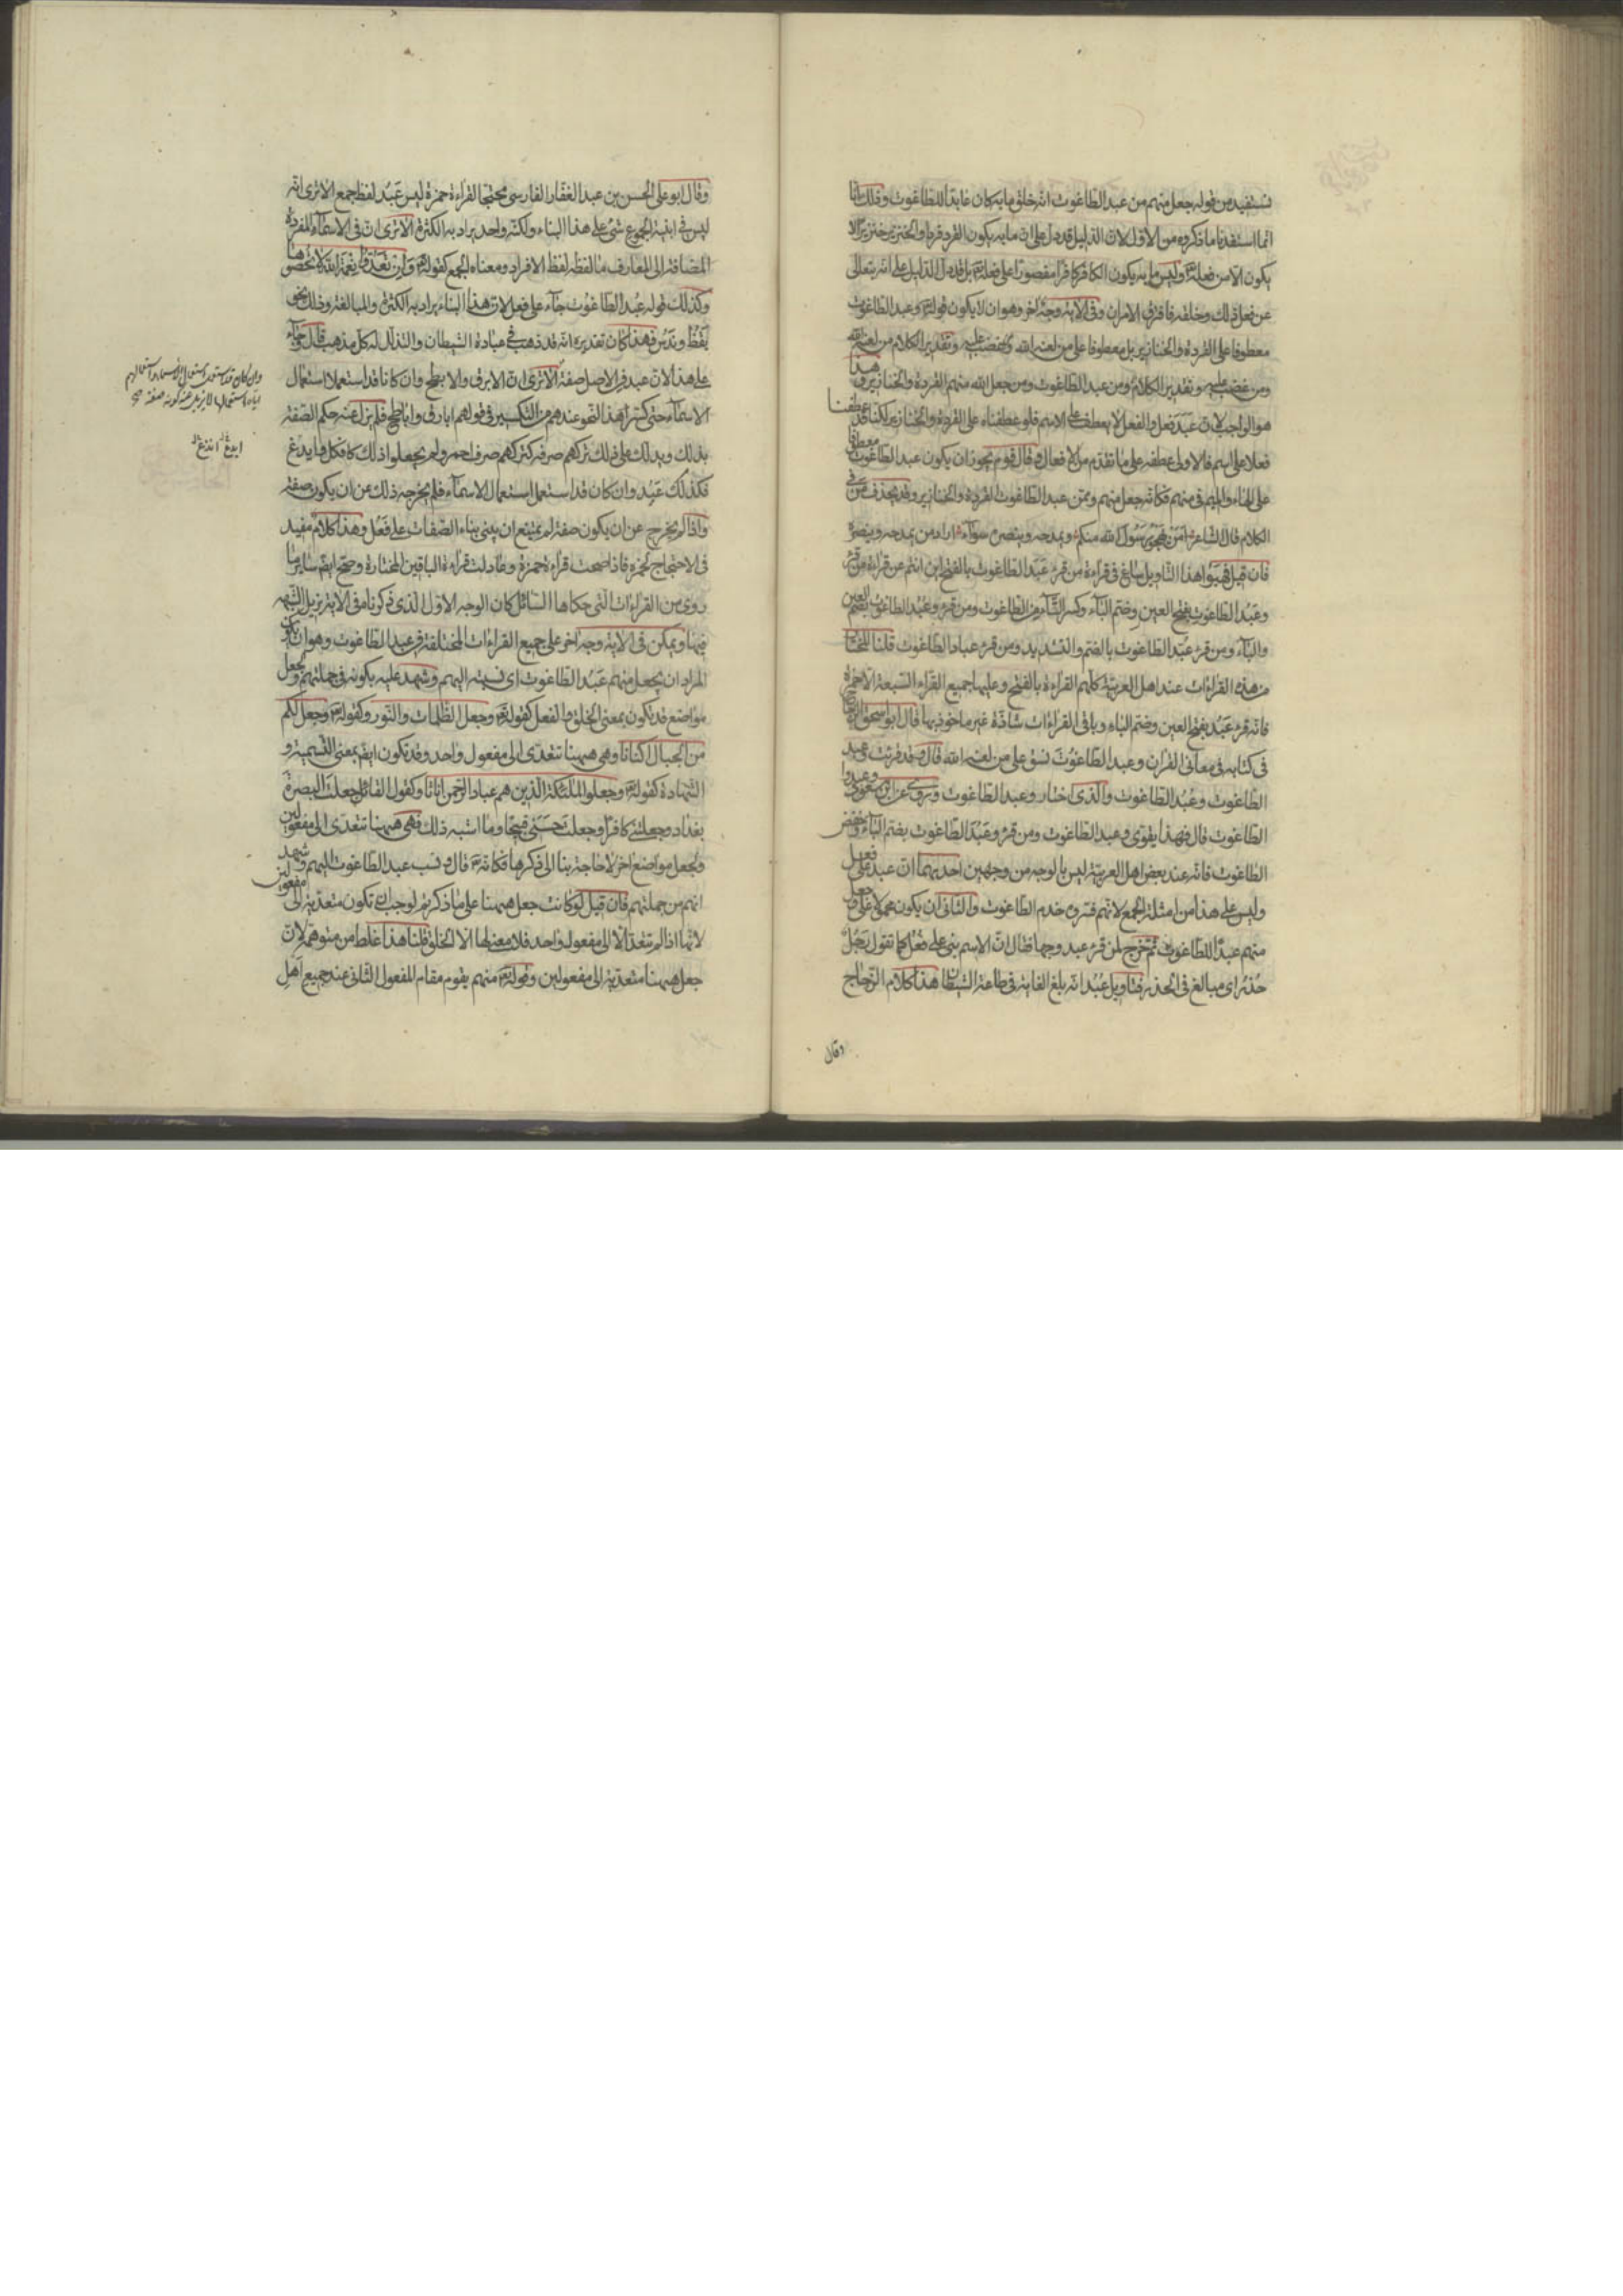 نستفيد من قوله جعل منهم من عبد الطاغوت انه خلق ما به كان عابدا للطاغوت وذلك انا
انما استفدنا ما ذكروه من الاول لان الدليل قد دل على ان ما به يكون القرد قردا والخنزير خنزيرا لا
يكون الا من فعله تعالى وليس ما به يكون الكافر كافرا مقصورا على فعله تعالى بل قد دل الدليل على انه يتعالى
عن فعل ذلك وخلقه فافترق الامران وفي الاية وجه اخر وهو ان لا يكون قوله تعالى وعبد الطاغوت
معطوفا على القردة والخنازير بل معطوفا على من لعنه الله وغضب عليه وتقدير الكلام من لعنه الله
ومن غضب عليه ومن عبد الطاغوت ومن جعل الله منهم القردة والخنازير وهذا
هو الواجب لان عبد فعل والفعل لا يعطف على الاسم فلو عطفناه على القردة والخنازير لكنا قد عطفنا
فعلا على اسم فالاولى عطفه على ما تقدم من الافعال وقال قوم يجوز ان يكون عبد الطاغوت معطوفا
على الهاء والميم في منهم فكانه جعل منهم وممن عبد الطاغوت القردة والخنازير وقد يحذف من في
الكلام قال الشاعر امن يهجو رسول الله منكم ويمدحه وينصره سواء اراد من يمدحه وينصره
فان قيل فهبوا هذا التاويل ساغ في قراءة من قرء عبد الطاغوت بالفتح اين انتم عن قراءة من قرء
وعبد الطاغوت بفتح العين وضم الباء وكسر التاء من الطاغوت ومن قرء وعبد الطاغوت بضم العين
والباء ومن قرء عبد الطاغوت بالضم والتشديد ومن قرء عباد الطاغوت قلنا المختار
من هذه القراءات عند اهل العربية كلهم القراءة بالفتح وعليها جميع القراء السبعة الا حمزة
فانه قرء عبد بفتح العين وضم الباء وباقي القراءات شاذة غير ماخوذ بها قال ابو اسحق الزجاج
في كتابه في معاني القران وعبد الطاغوت نسق على من لعنه الله قال وقد قرئت عبد
الطاغوت وعبد الطاغوت والذي اختار وعبد الطاغوت وروي عن ابن مسعود وعبدوا
الطاغوت قال فهذا يقوي وعبد الطاغوت ومن قرء وعبد الطاغوت بضم الباء وخفض
الطاغوت فانه عند بعض اهل العربية ليس بالوجه من وجهين احدهما ان عبد على فعل
وليس على هذا من امثلة الجمع لانهم فسروه خدم الطاغوت والثاني ان يكون محمولا على وجعل
منهم عبدا للطاغوت ثم خرج لمن قرء عبد وجها فقال ان الاسم بني على فعل كما تقول رجل
حذر اي مبالغ في الحذر فتاويل عبد انه بلغ الغاية في طاعة الشيطان هذا كلام الزجاج
وقال
وقال ابو علي الحسن بن عبد الغفار الفارسي محتجا لقراءة حمزة ليس عبد لفظ جمع الا ترى انه
ليس في ابنية الجموع شئ على هذا البناء ولكنه واحد يراد به الكثرة الا ترى ان في الاسماء المفردة
المضافة الى المعارف ما لفظه لفظ الافراد ومعناه الجمع كقوله تعالى وان تعدوا نعمة الله لا تحصوها
وكذلك قوله عبد الطاغوت جاء على فعل لان هذا البناء يراد به الكثرة والمبالغة وذلك نحو
يقظ وندس فهذا كان تقديره انه قد ذهب في عبادة الشيطان والتذلل له كل مذهب قال وجاء
على هذا لان عبد في الاصل صفة الا ترى ان الابرق والابطح وان كانا قد استعملا استعمال
الاسماء حتى كسرا هذا النحو عندهم من التكسير في قولهم ابارق واباطح فلم يزل عنه حكم الصفة
يدلك على ذلك تركهم صرفه كتركهم صرف احمر ولم يجعلوا ذلك كافكل وايدع
فكذلك عبد وان كان قد استعمل استعمال الاسماء فلم يخرجه ذلك عن ان يكون صفة
واذا لم يخرج عن ان يكون صفة لم يمتنع ان يبنى بناء الصفات على فعل وهذا كلام مفيد
في الاحتجاج لحمزة فاذا صحت قراءة حمزة وعادلت قراءة الباقين المختارة وصح ايضا ساير ما
روي من القراءات التي حكاها السائل كان الوجه الاول الذي ذكرناه في الاية يزيل الشبهة
فيها ويمكن في الاية وجه اخر على جميع القراءات المختلفة في عبد الطاغوت وهو ان يكون
المراد ان يجعل منهم عبد الطاغوت اي نسبه اليهم وشهد عليه بكونه في جملتهم ولجعل
مواضع قد تكون بمعنى الخلق والفعل كقوله تعالى وجعل الظلمات والنور وكقوله تعالى وجعل لكم
من الجبال اكنانا وهي ههنا تتعدى الى مفعول واحد وقد تكون ايضا بمعنى التسمية و
الشهادة كقوله تعالى وجعلوا الملئكة الذين هم عباد الرحمن اناثا وكقول القائل جعلت البصرة
بغداد وجعلتني كافرا وجعلت حسني قبيحا وما اشبه ذلك فهي ههنا تتعدى الى مفعولين
ولجعل مواضع اخر لا حاجة بنا الى ذكرها فكانه تعالى قال ونسب عبد الطاغوت اليهم وشهد
انهم من جملتهم فان قيل لو كانت جعل ههنا على ما ذكرتم لوجب ان تكون متعدية الى مفعولين
لانها اذا لم تتعد الا الى مفعول واحد فلا معنى لها الا الخلق قلنا هذا غلط من متوهمه لان
جعل ههنا متعدية الى مفعولين وقوله تعالى منهم يقوم مقام المفعول الثاني عند جميع اهل